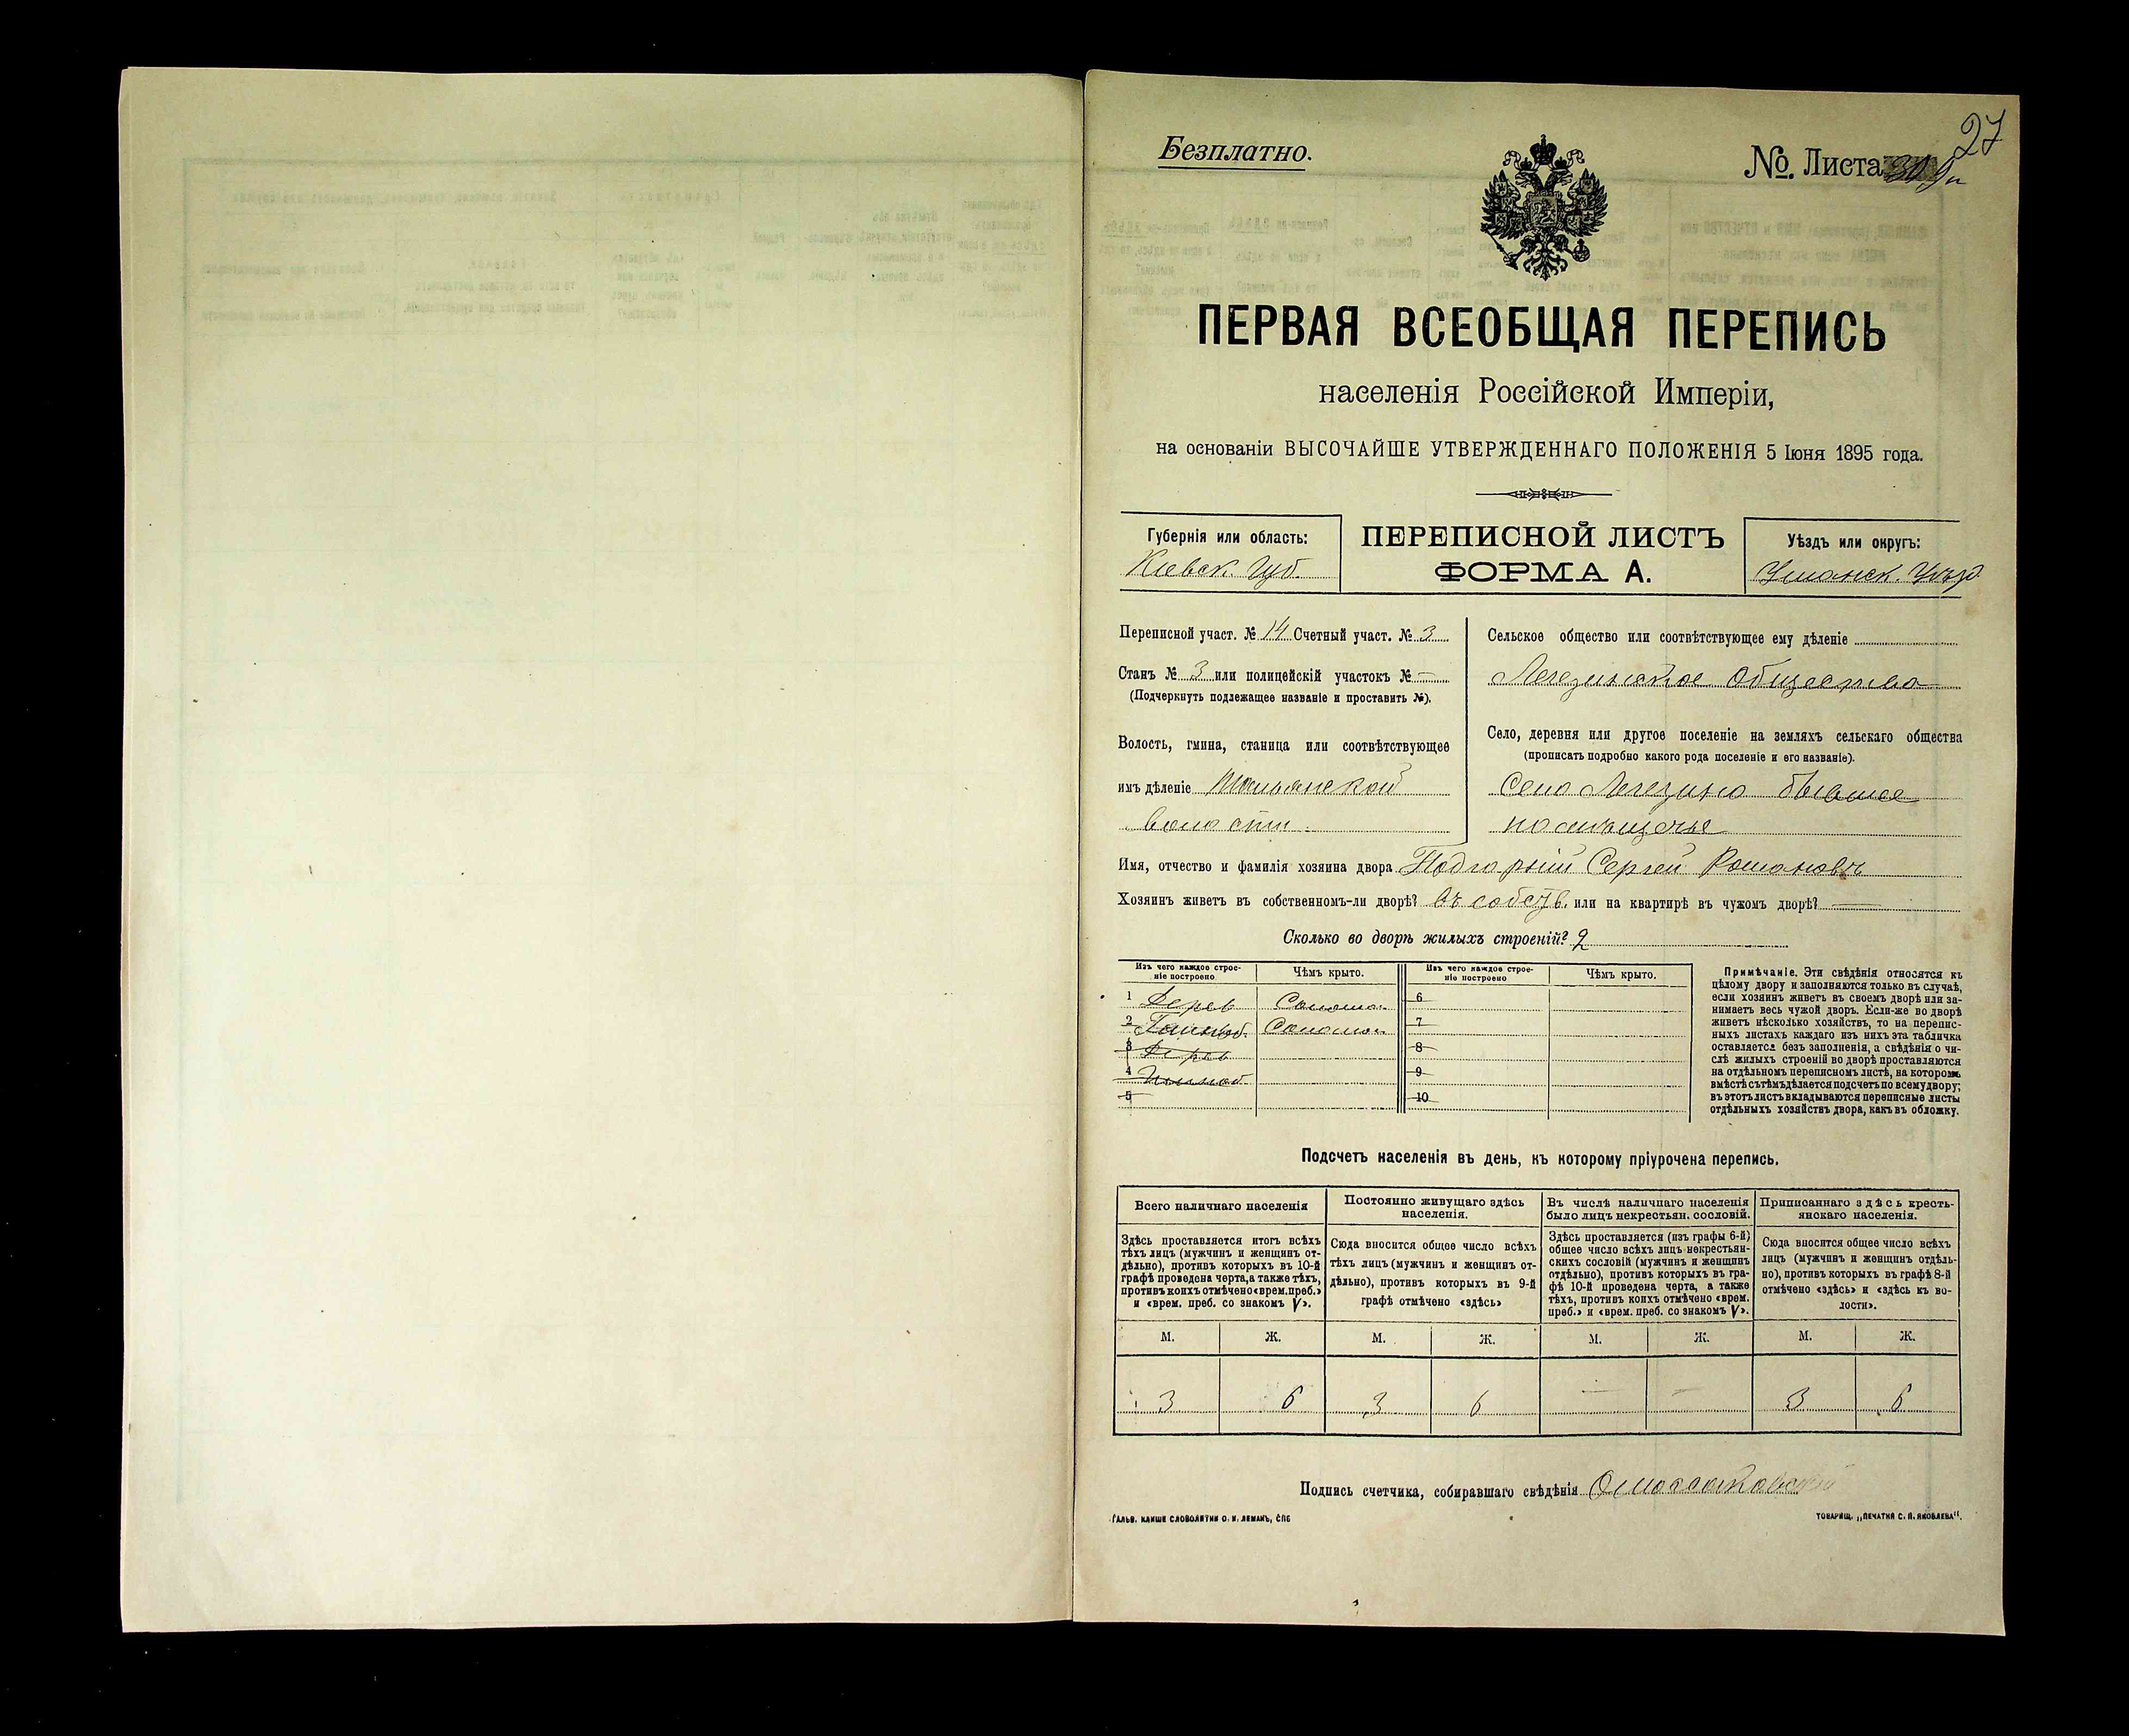 27
Безплатно.
№. Листа
ПЕРВАЯ ВСЕОБЩАЯ ПЕРЕПИСЬ
населенія Россійской Имперіи,
на основаніи ВЫСОЧАЙШЕ УТВЕРЖДЕННАГО ПОЛОЖЕНІЯ 5 Іюня 1895 года.
Губернія или область:
Кіевск. Губ.
ПЕРЕПИСНОЙ ЛИСТЪ
ФОРМА А.
Уѣздъ или округъ:
Уманск. Уѣзд
Переписной участ. № 14 Счетный участ. № 3
Станъ № 3 или полицейскій участокъ № —
(Подчеркнуть подлежащее названіе и проставить №).
Волость, гмина, станица или соотвѣтствующее
имъ дѣленіе Тальянской
волости.
Сельское общество или соотвѣтствующее ему дѣленіе
Легезинское Общество
Село, деревня или другое поселеніе на земляхъ сельскаго общества
(прописать подробно какого рода поселеніе и его названіе).
Село Легезино бывшее
помѣщечье
Имя, отчество и фамилія хозяина двора Подгорній Сергей Романовъ
Хозяинъ живетъ въ собственномъ-ли дворѣ? въ собств. или на квартирѣ въ чужомъ дворѣ? —
Сколько во дворѣ жилыхъ строеній? 2
Изъ чего каждое строе-
ніе построено
Чѣмъ крыто.
Изъ чего каждое строе-
ніе построено
Чѣмъ крыто.
1 Дерев Солома. 6
2 Солома. 7
3 Дерев 8
4 9
5 10
Примѣчаніе. Эти свѣдѣнія относятся къ
цѣлому двору и заполняются только въ случаѣ,
если хозяинъ живетъ въ своемъ дворѣ или за-
нимаетъ весь чужой дворъ. Если-же во дворѣ
живетъ нѣсколько хозяйствъ, то на перепис-
ныхъ листахъ каждаго изъ нихъ эта табличка
оставляется безъ заполненія, а свѣдѣнія о чи-
слѣ жилыхъ строеній во дворѣ проставляются
на отдѣльномъ переписномъ листѣ, на которомъ
вмѣстѣ съ тѣмъ дѣлается подсчетъ по всему двору;
въ этотъ листъ вкладываются переписные листы
отдѣльныхъ хозяйствъ двора, какъ въ обложку.
Подсчетъ населенія въ день, къ которому пріурочена перепись.
Всего наличнаго населенія
Здѣсь проставляется итогъ всѣхъ
тѣхъ лицъ (мужчинъ и женщинъ от-
дѣльно), противъ которыхъ въ 10-й
графѣ проведена черта, а также тѣхъ,
противъ коихъ отмѣчено «врем. преб.»
и «врем. преб. со знакомъ V».
Постоянно живущаго здѣсь
населенія.
Сюда вносится общее число всѣхъ
тѣхъ лицъ (мужчинъ и женщинъ от-
дѣльно), противъ которыхъ въ 9-й
графѣ отмѣчено «здѣсь»
Въ числѣ наличнаго населенія
было лицъ некрестьян. сословій.
Здѣсь проставляется (изъ графы 6-й)
общее число всѣхъ лицъ некрестьян-
скихъ сословій (мужчинъ и женщинъ
отдѣльно), противъ которыхъ въ гра-
фѣ 10-й проведена черта, а также
тѣхъ, противъ коихъ отмѣчено «врем.
преб.» и «врем. преб. со знакомъ V».
Приписаннаго здѣсь кресть-
янскаго населенія.
Сюда вносится общее число всѣхъ
лицъ (мужчинъ и женщинъ отдѣль-
но), противъ которыхъ въ графѣ 8-й
отмѣчено «здѣсь» и «здѣсь къ во-
лости».
М. Ж. М. Ж. М. Ж. М. Ж.
3 6 3 6 — — 3 6
Подпись счетчика, собиравшаго свѣдѣнія
ГАЛЬВ. КЛИШЕ СЛОВОЛИТНИ О. И. ЛЕМАНЪ, СПБ
ТОВАРИЩ. „ПЕЧАТНЯ С. П. ЯКОВЛЕВА“.